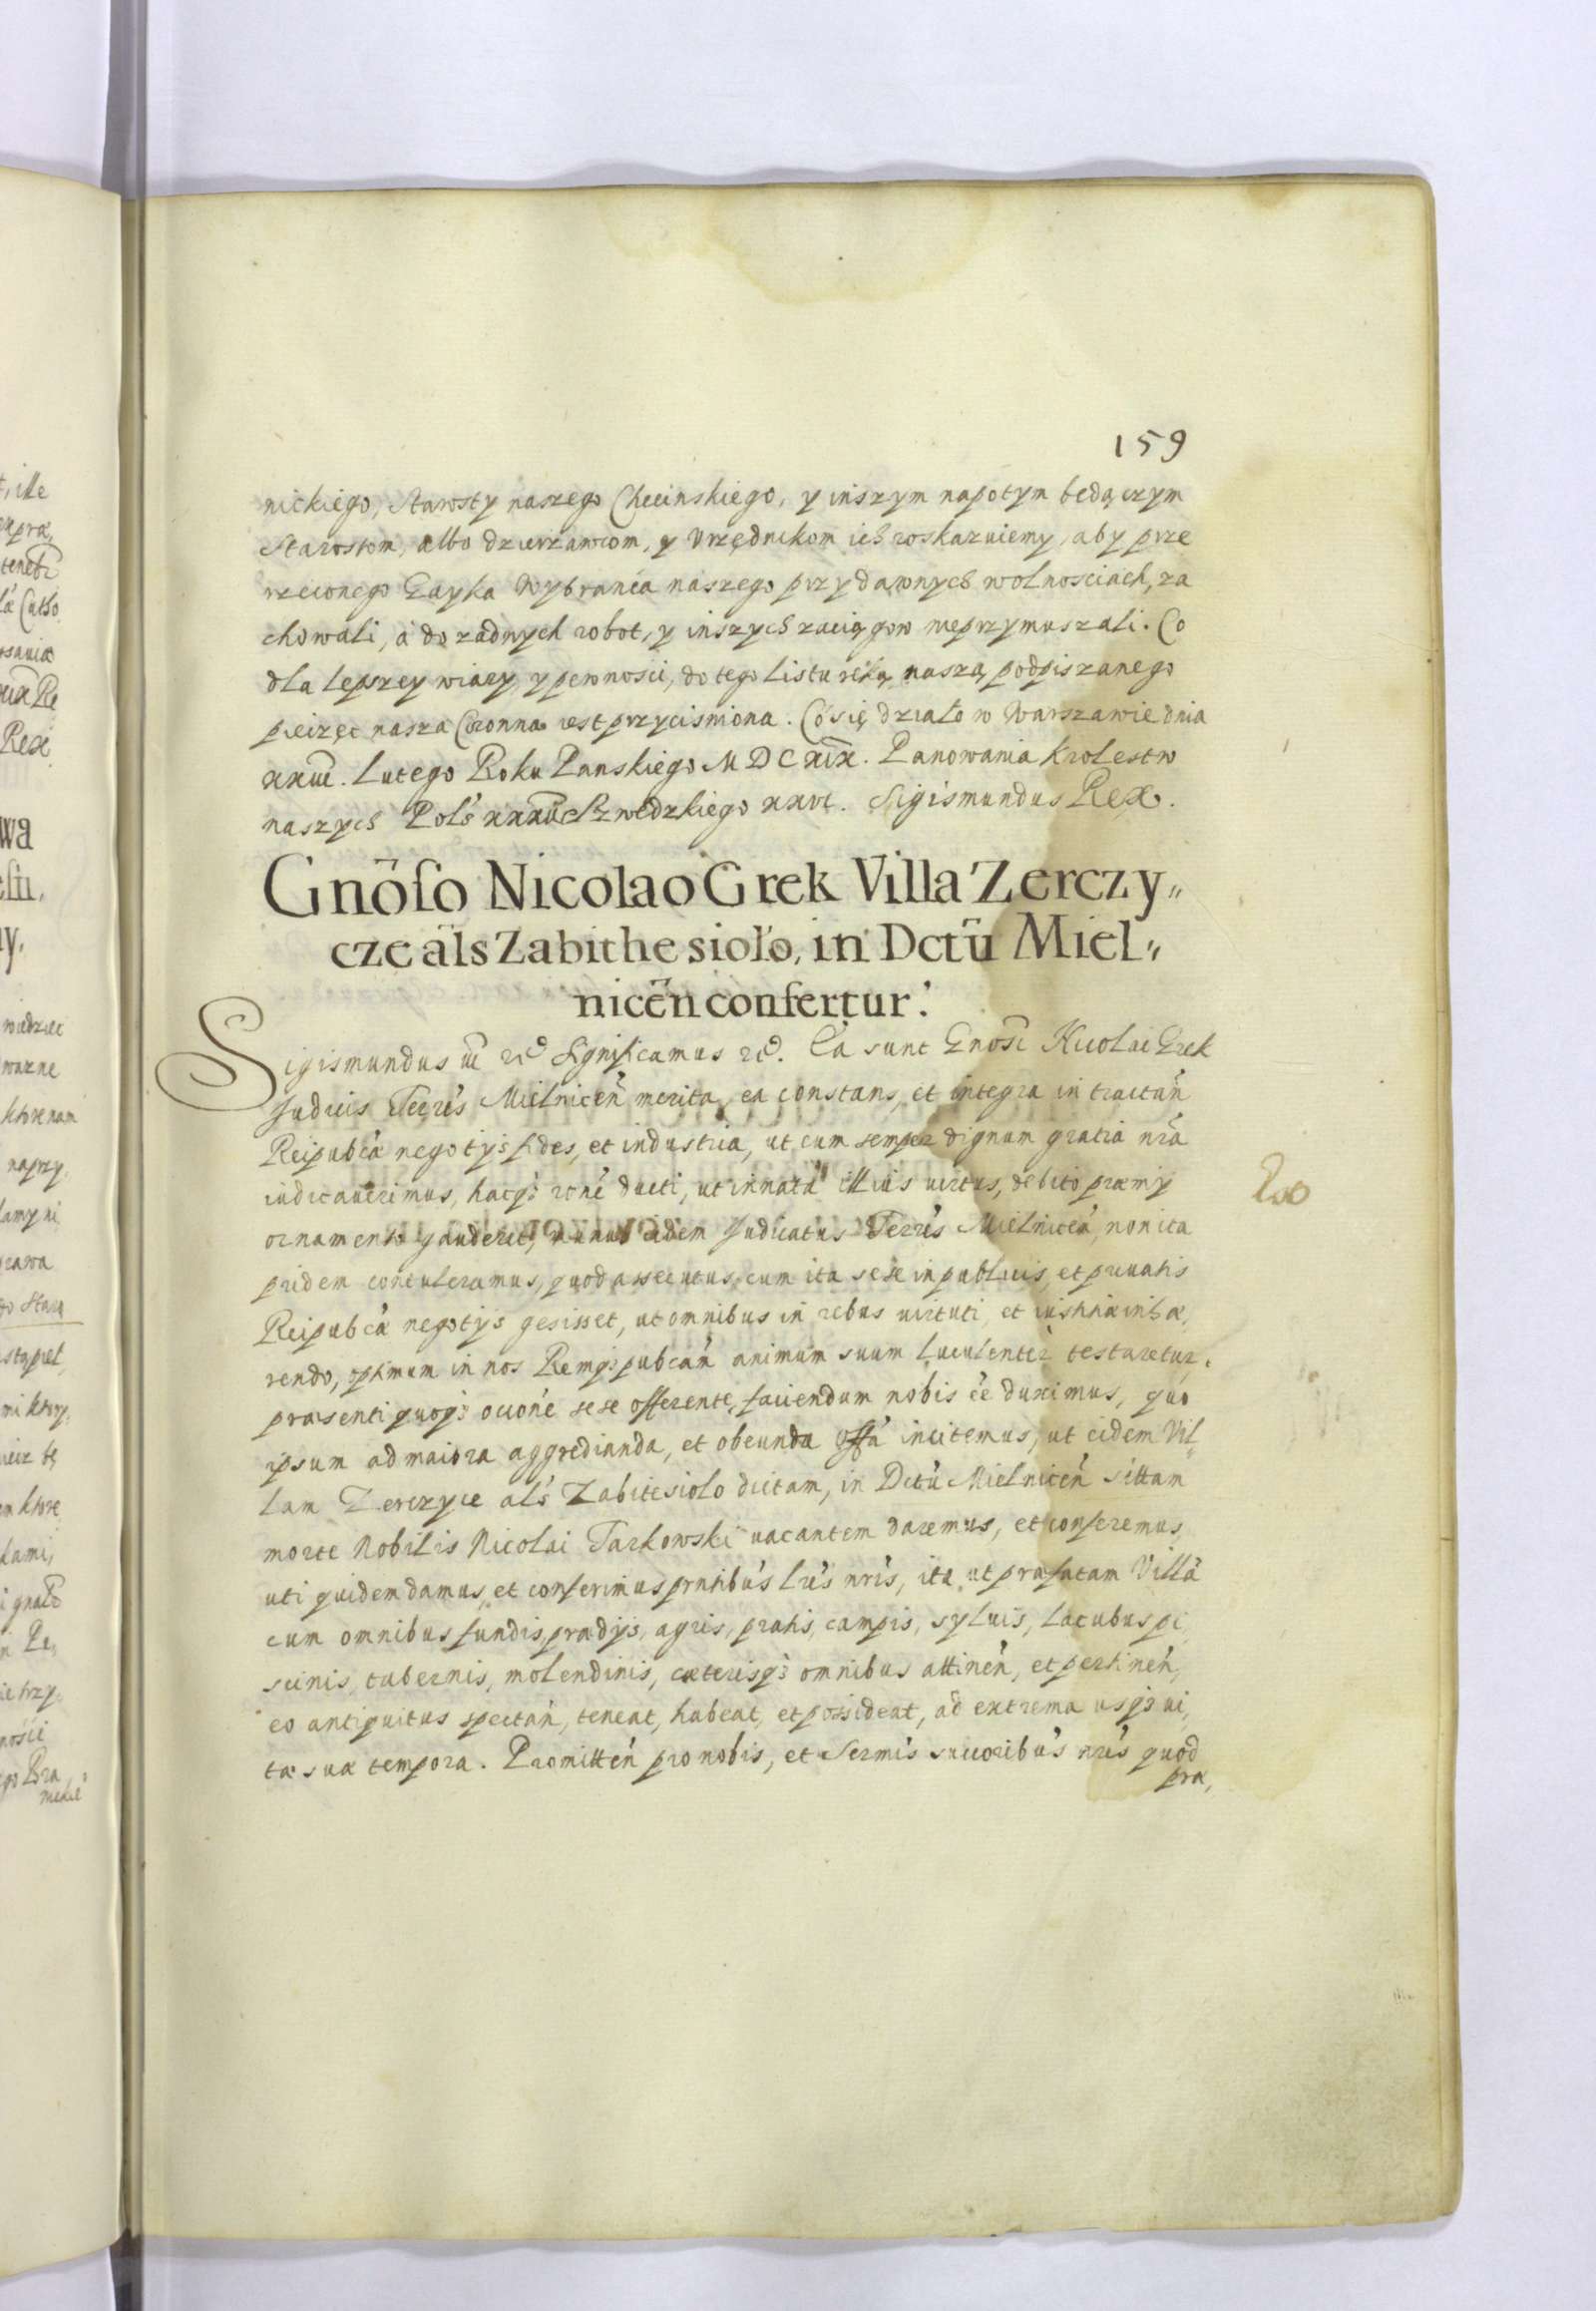 159
nickiego, Starosty naszego Chęcinskiego, y inszym napotym będączym
Starostom, albo dzierzawcom, y Vrzędnikom ich roskazuiemy, aby prze
rzeczonego Gayka Wybranca naszego przy dawnych wolnosciach, za
chowali, á do zadnych robot, y inszych zaciągow nieprzymuszali. Co
dla lepszey wiary y pewnosci, do tego listu ręką naszą podpiszanego
pieczęc nasza Coronna iest przycisniona. Co się działo w Warszawie dnia
Lutego Roku Panskiego M D C XIX. Panowania Krolestw
naszych Pols Szwedzkiego xxvi. Sigismundus Rex.
Gnõso Nicolao Grek Villa Zerczy„
cze ãls Zabithe sioło, in Dctũ Miel„
nicẽn confertur.
Sigismundus iii etc Significamus etc. Ea sunt Gnosi Nicolai Grek
Judicis Terrs Mielnicen merita, ea constans, et integra in tractan
Reipubca negotÿs fides, et industria, ut eum semper dignum gratia nra
iudicauerimus, hacq3 rone ducti, ut innata illius uirtus, debito præmÿ
ornamento gauderet, munus eidem Judicatus Terrs Mielnicen, non ita
pridem contuleramus, quod assecutus, cum ita sese in publicis, et priuatis
Reipubca negotÿs gesisset, ut omnibus in rebus uirtuti, et iustitiæ inhæ,
rendo, optimum in nos Remq3 pubcan animum suum luculenter testaretur,
præsenti quoq3 occone sese offerente, faciendum nobis ee duximus, quo
ipsum ad maiora aggredianda, et obeunda offa incitemus, ut eidem Vil,
lam Zerczyce als Zabitesiolo dictam, in Dctu Mielnicen sittam
morte Nobilis Nicolai Tarkowski uacantem daremus, et conferemus
uti quidem damus, et conferimus prntibus lrs nris, ita ut præfatam Villã
cum omnibus fundis, prædÿs, agris, pratis, campis, syluis, lacubus pi,
scinis, tabernis, molendinis, cæterisq3 omnibus attinen, et pertinen,
eo antiquitus spectan, teneat, habeat, et possideat, ad extrema usq3 ui,
tæ suæ tempora. Promitten pro nobis, et Sermis succoribus nris quod
præ,